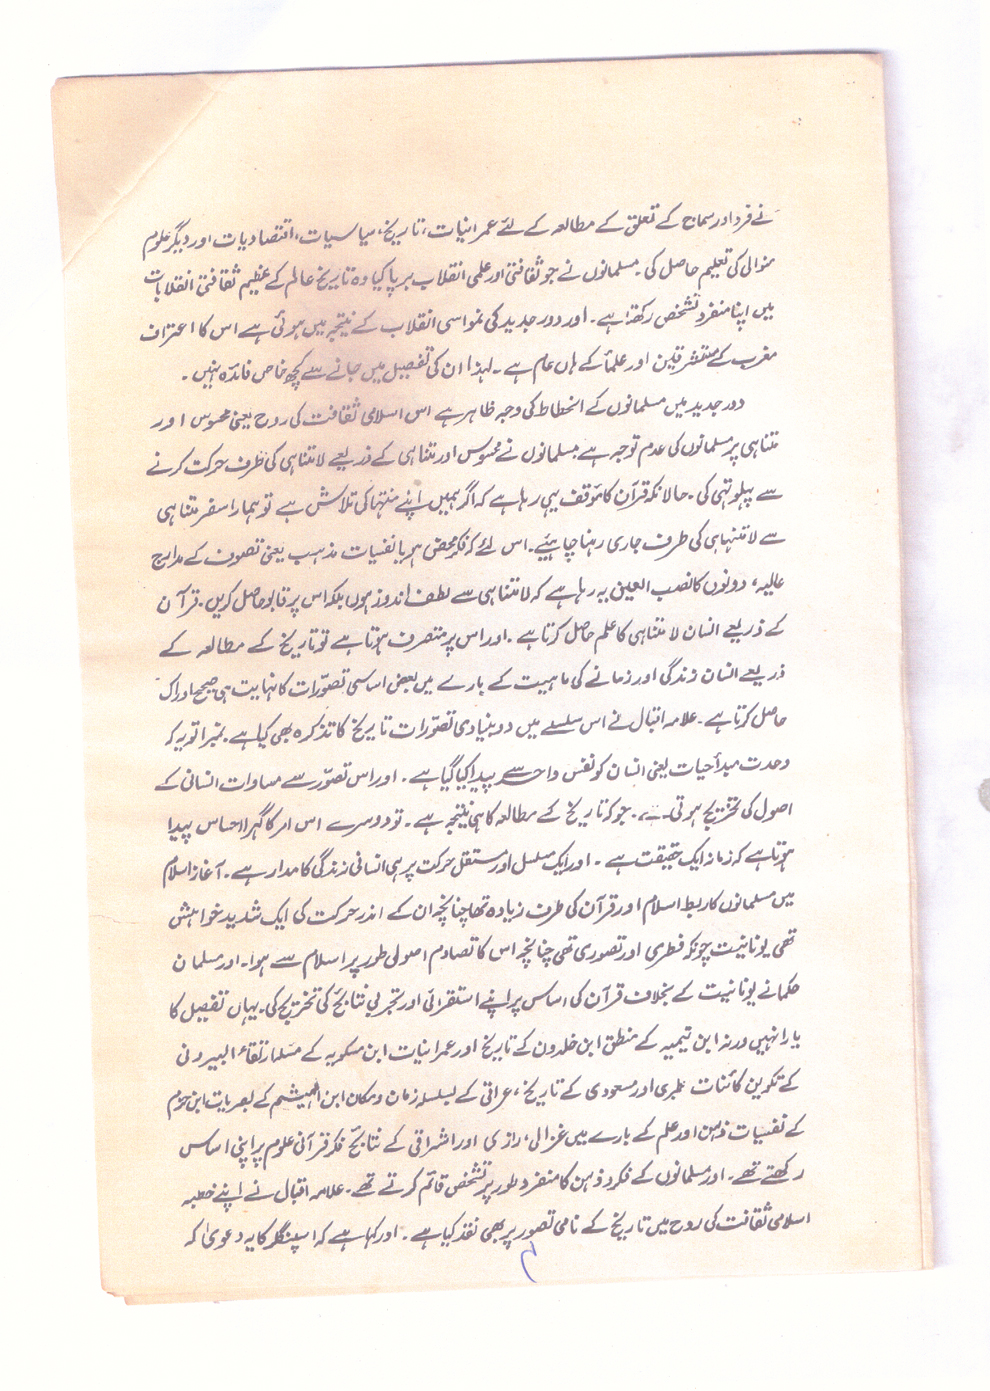 نے فرد اور سماج کے تعلق کے مطالعہ کے لئے عمرانیات، تاریخ، سیاسیات، اقتصادیات اور دیگر علوم
منوالی کی تعلیم حاصل کی۔ مسلمانوں نے جو ثقافتی اور علمی انقلاب برپا کیا وہ تاریخ عالم کے عظیم ثقافتی انقلابات
میں اپنا منفرد تشخص رکھتا ہے۔ اور دور جدید کی نمو اسی انقلاب کے نتیجہ میں ہوئی ہے اس کا اعتراف
مغرب کے مستشرقین اور علماً کے ہاں عام ہے۔ لہذا ان کی تفصیل میں جانے سے کچھ خاص فائدہ نہیں۔
دور جدید میں مسلمانوں کے انحطاط کی وجہ ظاہر ہے اس اسلامی ثقافت کی روح یعنی محسوس اور
متناہی پر مسلمانوں کی عدم توجہ ہے مسلمانوں نے محسوس اور متناہی کے ذریعے لامتناہی کی طرف حرکت کرنے
سے پہلو تہی کی۔ حالانکہ قرآن کا موقف یہی رہا ہے کہ اگر ہمیں اپنے منتہا کی تلاش ہے تو ہمارا سفر متناہی
سے لامتنہاہی کی طرف جاری رہنا چاہیئے۔ اس لئے کہ فکر محض ہو یا نفسیات مذہب یعنی تصوف کے مدارج
عالیہ، دونوں کا نصب العین یہ رہا ہے کہ لامتناہی سے لطف اندوز ہوں بلکہ اس پر قابو حاصل کریں۔ قرآن
کے ذریعے انسان لامتناہی کا علم حاصل کرتا ہے۔ اور اس پر متصرف ہوتا ہے تو تاریخ کے مطالعہ کے
ذریعے انسان زندگی اور زمانے کی ماہیت کے بارے میں بعض اساسی تصوّرات کا نہایت ہی صحیح ادراک
حاصل کرتا ہے۔ علامہ اقبال نے اس سلسلے میں دو بنیادی تصوّرات تاریخ کا تذکرہ بھی کیا ہے۔ نمبر ا تو یہ کہ
وحدت مبدأ حیات یعنی انسان کو نفس واحد سے پیدا کیا گیا ہے۔ اور اس تصوّر سے مساوات انسانی کے
اصول کی تخریج ہوتی ہے۔ جو کہ تاریخ کے مطالعہ کا ہی نتیجہ ہے۔ تو دوسرے اس امر کا گہرا احساس پیدا
ہوتا ہے کہ زمانہ ایک حقیقت ہے۔ اور ایک مسلسل اور مستقل حرکت پر ہی انسانی زندگی کا مدار ہے۔ آغاز اسلام
میں مسلمانوں کا ربط اسلام اور قرآن کی طرف زیادہ تھا چنانچہ ان کے اندر حرکت کی ایک شدید خواہش
تھی یونانیت چونکہ فطری اور تصوری تھی چنانچہ اس کا تصادم اصولی طور پر اسلام سے ہوا۔ اور مسلمان
حکما نے یونانیت کے بخلاف قرآن کی اساس پر اپنے استقرائی اور تجربی نتائج کی تخریج کی۔ یہاں تفصیل کا
یارا نہیں ورنہ ابن تیمیہ کے منطق ابن خلدون کے تاریخ اور عمرانیات ابن مسکویہ کے مسئلہ ارتقاء البیرونی
کے تکوین کائنات طبری اور مسعودی کے تاریخ، عراقی کے بسلسلہ زمان و مکان ابن الہیشم کے بصریات ابن حزم
کے نفسیات ذہن اور علم کے بارے میں غزالی، رازی اور اشراقی کے نتائج فکر قرآنی علوم پر اپنی اساس
رکھتے تھے۔ اور مسلمانوں کے فکر و ذہن کا منفرد طور پر تشخص قائم کرتے تھے۔ علامہ اقبال نے اپنے خطبہ
اسلامی ثقافت کی روح میں تاریخ کے نامی تصور پر بھی نقد کیا ہے۔ اور کہا ہے کہ اسپنگلر کا یہ دعویٰ کہ